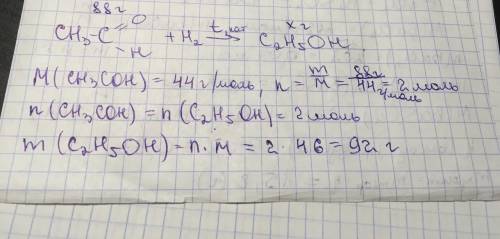 88 г
CH₃-C=O + H₂ →(t, кат) C₂H₅OH
H
x г
M(CH₃COH) = 44 г/моль, n = m/M = 88г/44 г/моль = 2 моль
n(CH₃COH) = n(C₂H₅OH) = 2 моль
m(C₂H₅OH) = n·M = 2·46 = 92 г